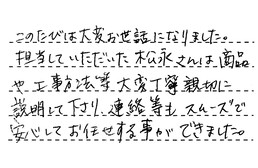 このたびは大変お世話になりました。
担当していただいた松永さんは商品
や工事方法等大変丁寧親切に
説明して下さり、連絡等もスムーズで
安心してお任せする事ができました。